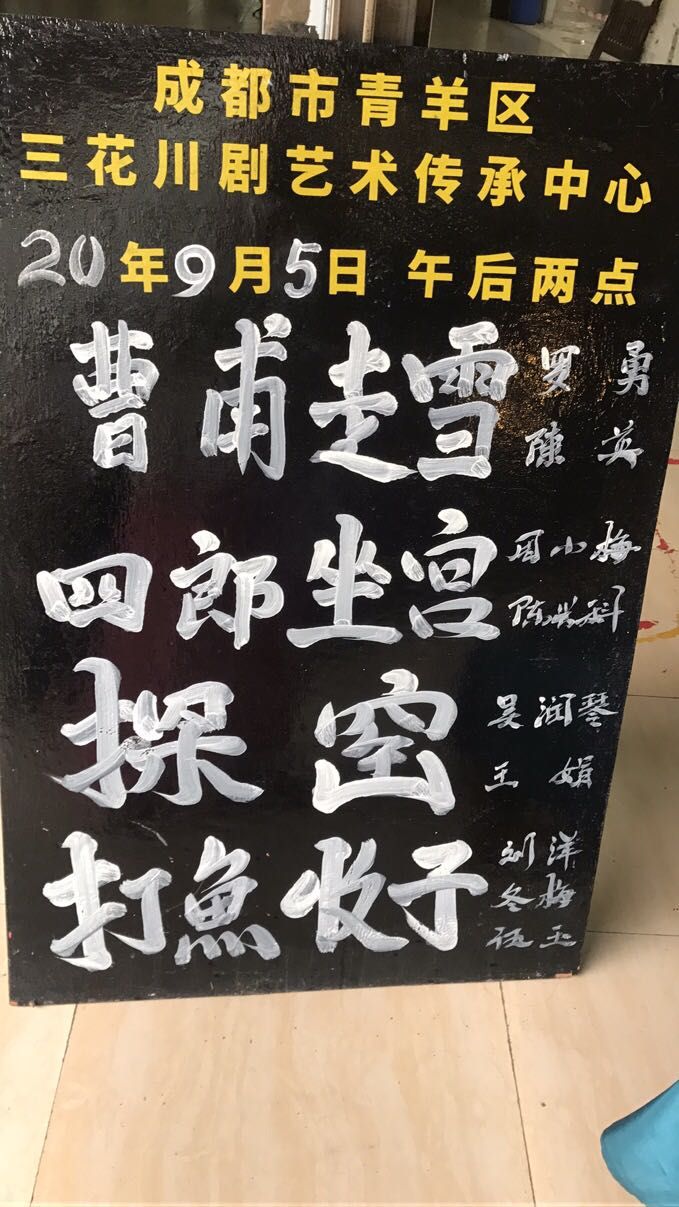 成都市青羊区
三花川剧艺术传承中心
20年9月5日 午后两点
曹甫走雪 罗勇
陳英
四郎坐宫 周小梅
探窑 吴润琴
王娟
打魚收子 刘洋
冬梅
伍玉